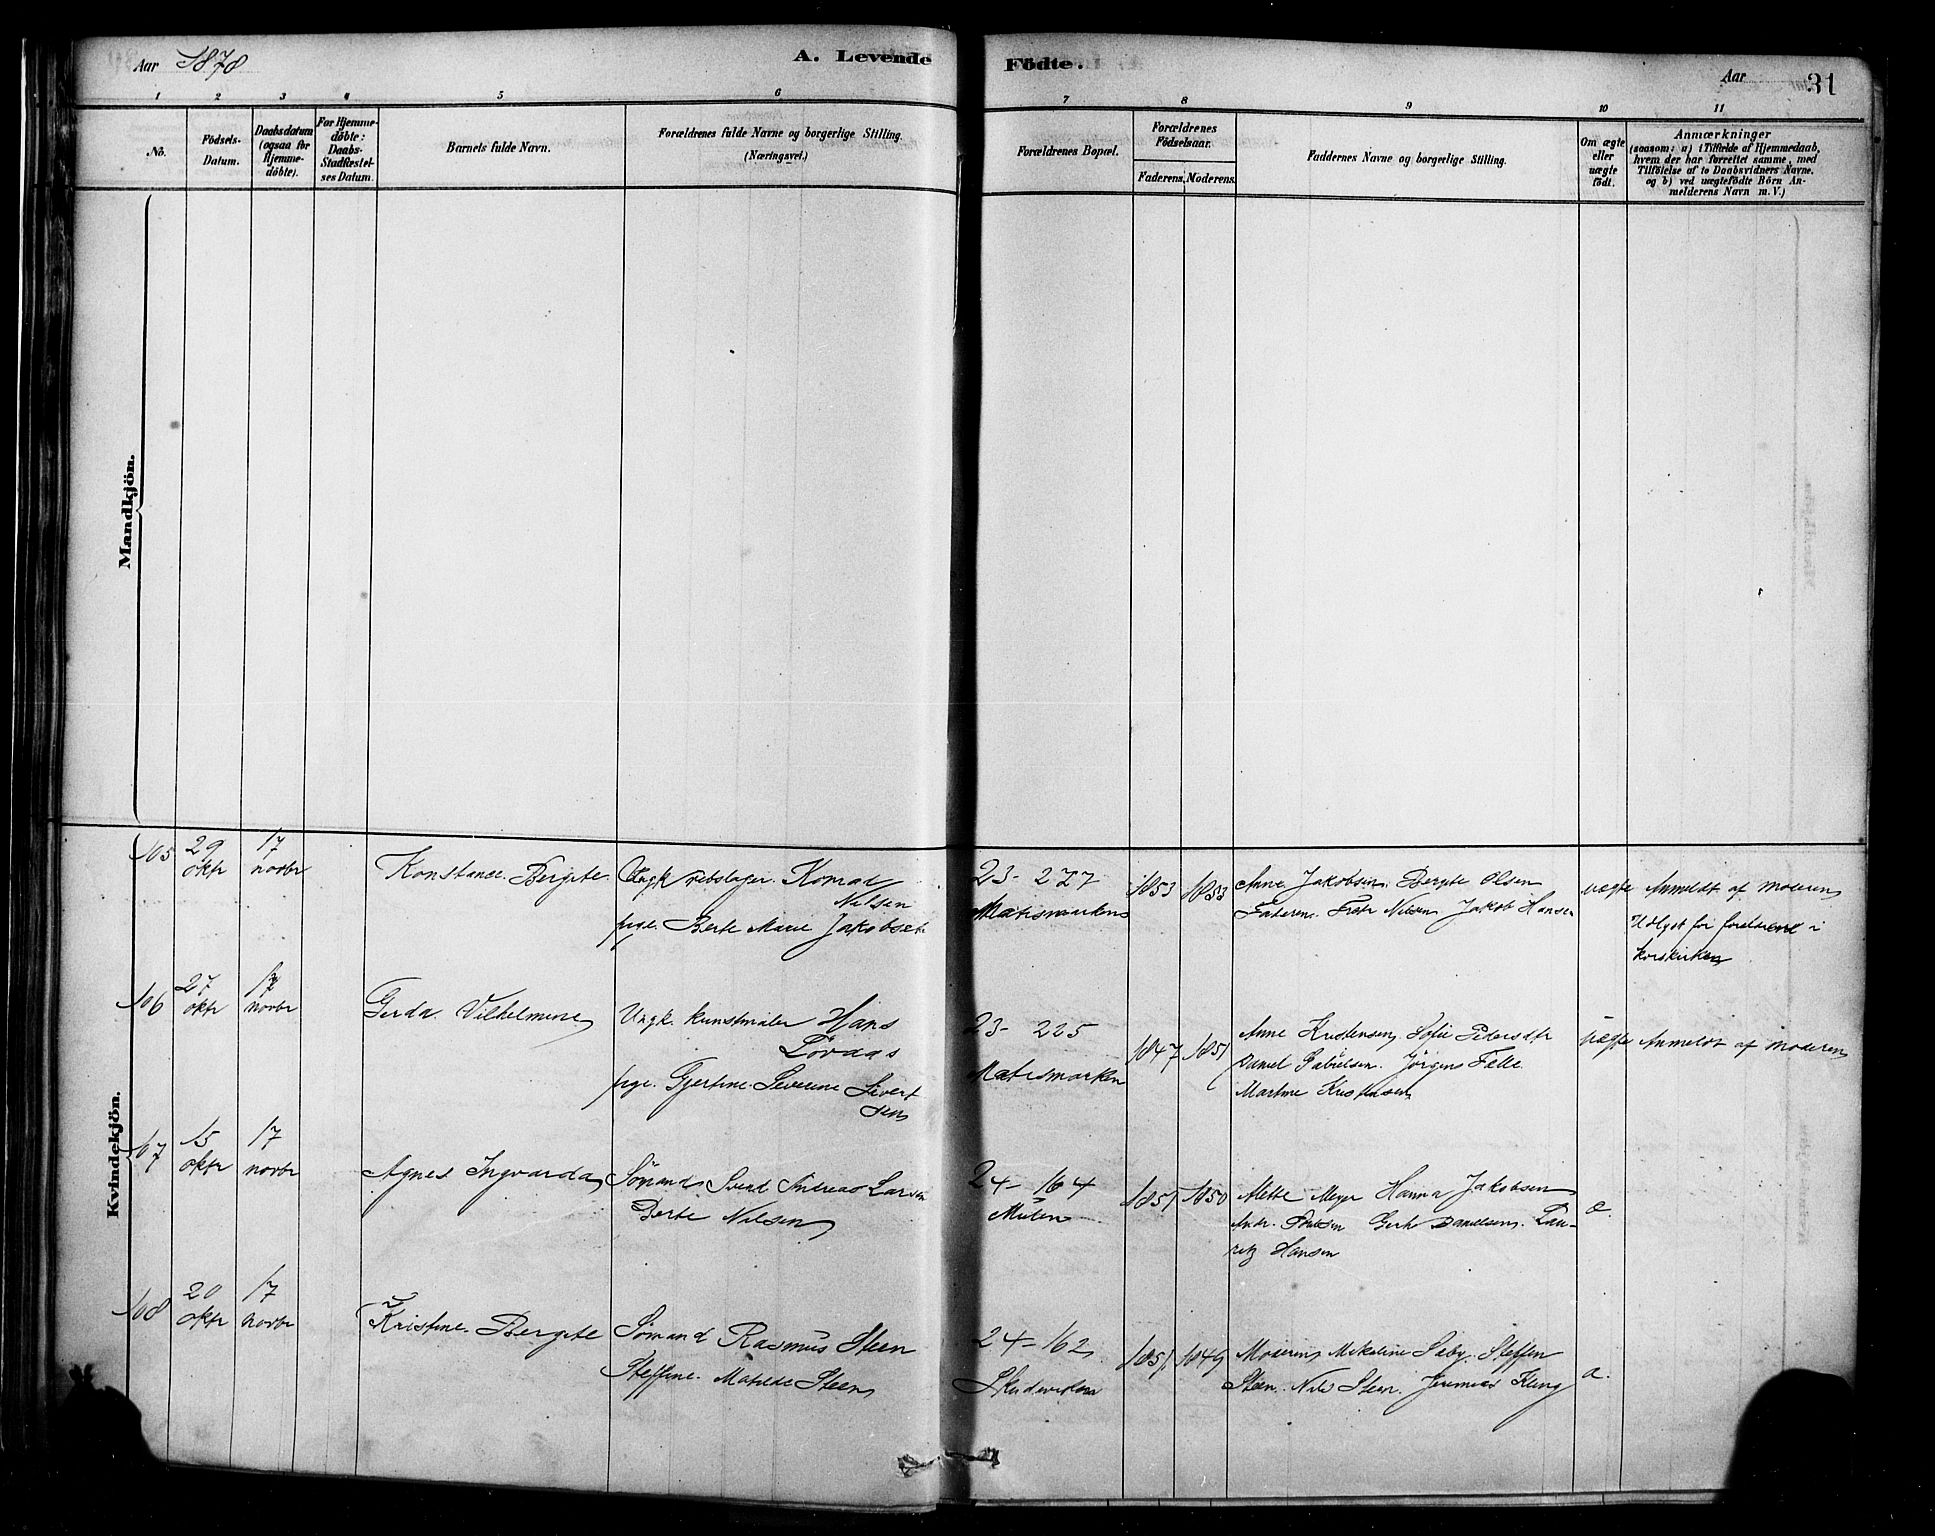 Aar 1878
A. Levende Födte.
Aar
31
1 2 3 4 5 6 7 8 9 10 11
No.
Födsels-
Datum.
Daabsdatum
(ogsaa for
Hjemme-
döbte).
For Hjemme-
döbte:
Daabs-
Stadfæstel-
ses Datum.
Barnets fulde Navn.
Forældrenes fulde Navne og borgerlige Stilling.
(Næringsvei.)
Forældrenes Bopæl.
Forældrenes
Födselsaar.
Faderens. Moderens.
Faddernes Navne og borgerlige Stilling.
Om ægte
eller
uægte
födt.
Anmærkninger
(saasom: a) i Tilfælde af Hjemmedaab,
hvem der har forrettet samme, med
Tilföielse af to Daabsvidners Navne.
og b) ved uægtefödte Börn An-
melderens Navn m. V.)
Mandkjön.
Kvindekjön.
105
29
oktr
17
novbr
Konstance Bergite
Ungk rebslager Konrad
Nilsen
pige Berte Marie
23- 227
Matismarken
1853
1853
Anne Jakobsen Bergite Olsen
Faderen Nilsen Jakob Hansen
uægte
Anmeldt af moderen
Udlyst for forældrene i
korskirken
106
27
oktr
17
novbr
Gerda Vilhelmine
Ungk. kunstmaler Hans
Lövaas
pige Gjertine Severine Sivert
sen
23- 225
Matismarken
1847
1851
Anne Kristensen Sofie Petersdtr
Daniel Gabrielsen Jörgen Felle
Martine Kristensen
uægte
Anmeldt af moderen
107
15
oktr
17
novbr
Agnes Ingvarda
Sömand Svend Andreas Larsen
Berte Nilsen
24- 164
Mulen
1851
1850
Mette Meyer Hanna Jakobsen
Andr. Danielsen Lau-
ritz Hansen
æ.
108
20
oktr
17
novbr
Kristine Bergite
Sömand Rasmus Steen
Steffine Matilde Steen
24-162
Skudeviken
1851
1849
Moderen Mikeline Steffen
Steen Nils Steen Jeremias Kling
æ.